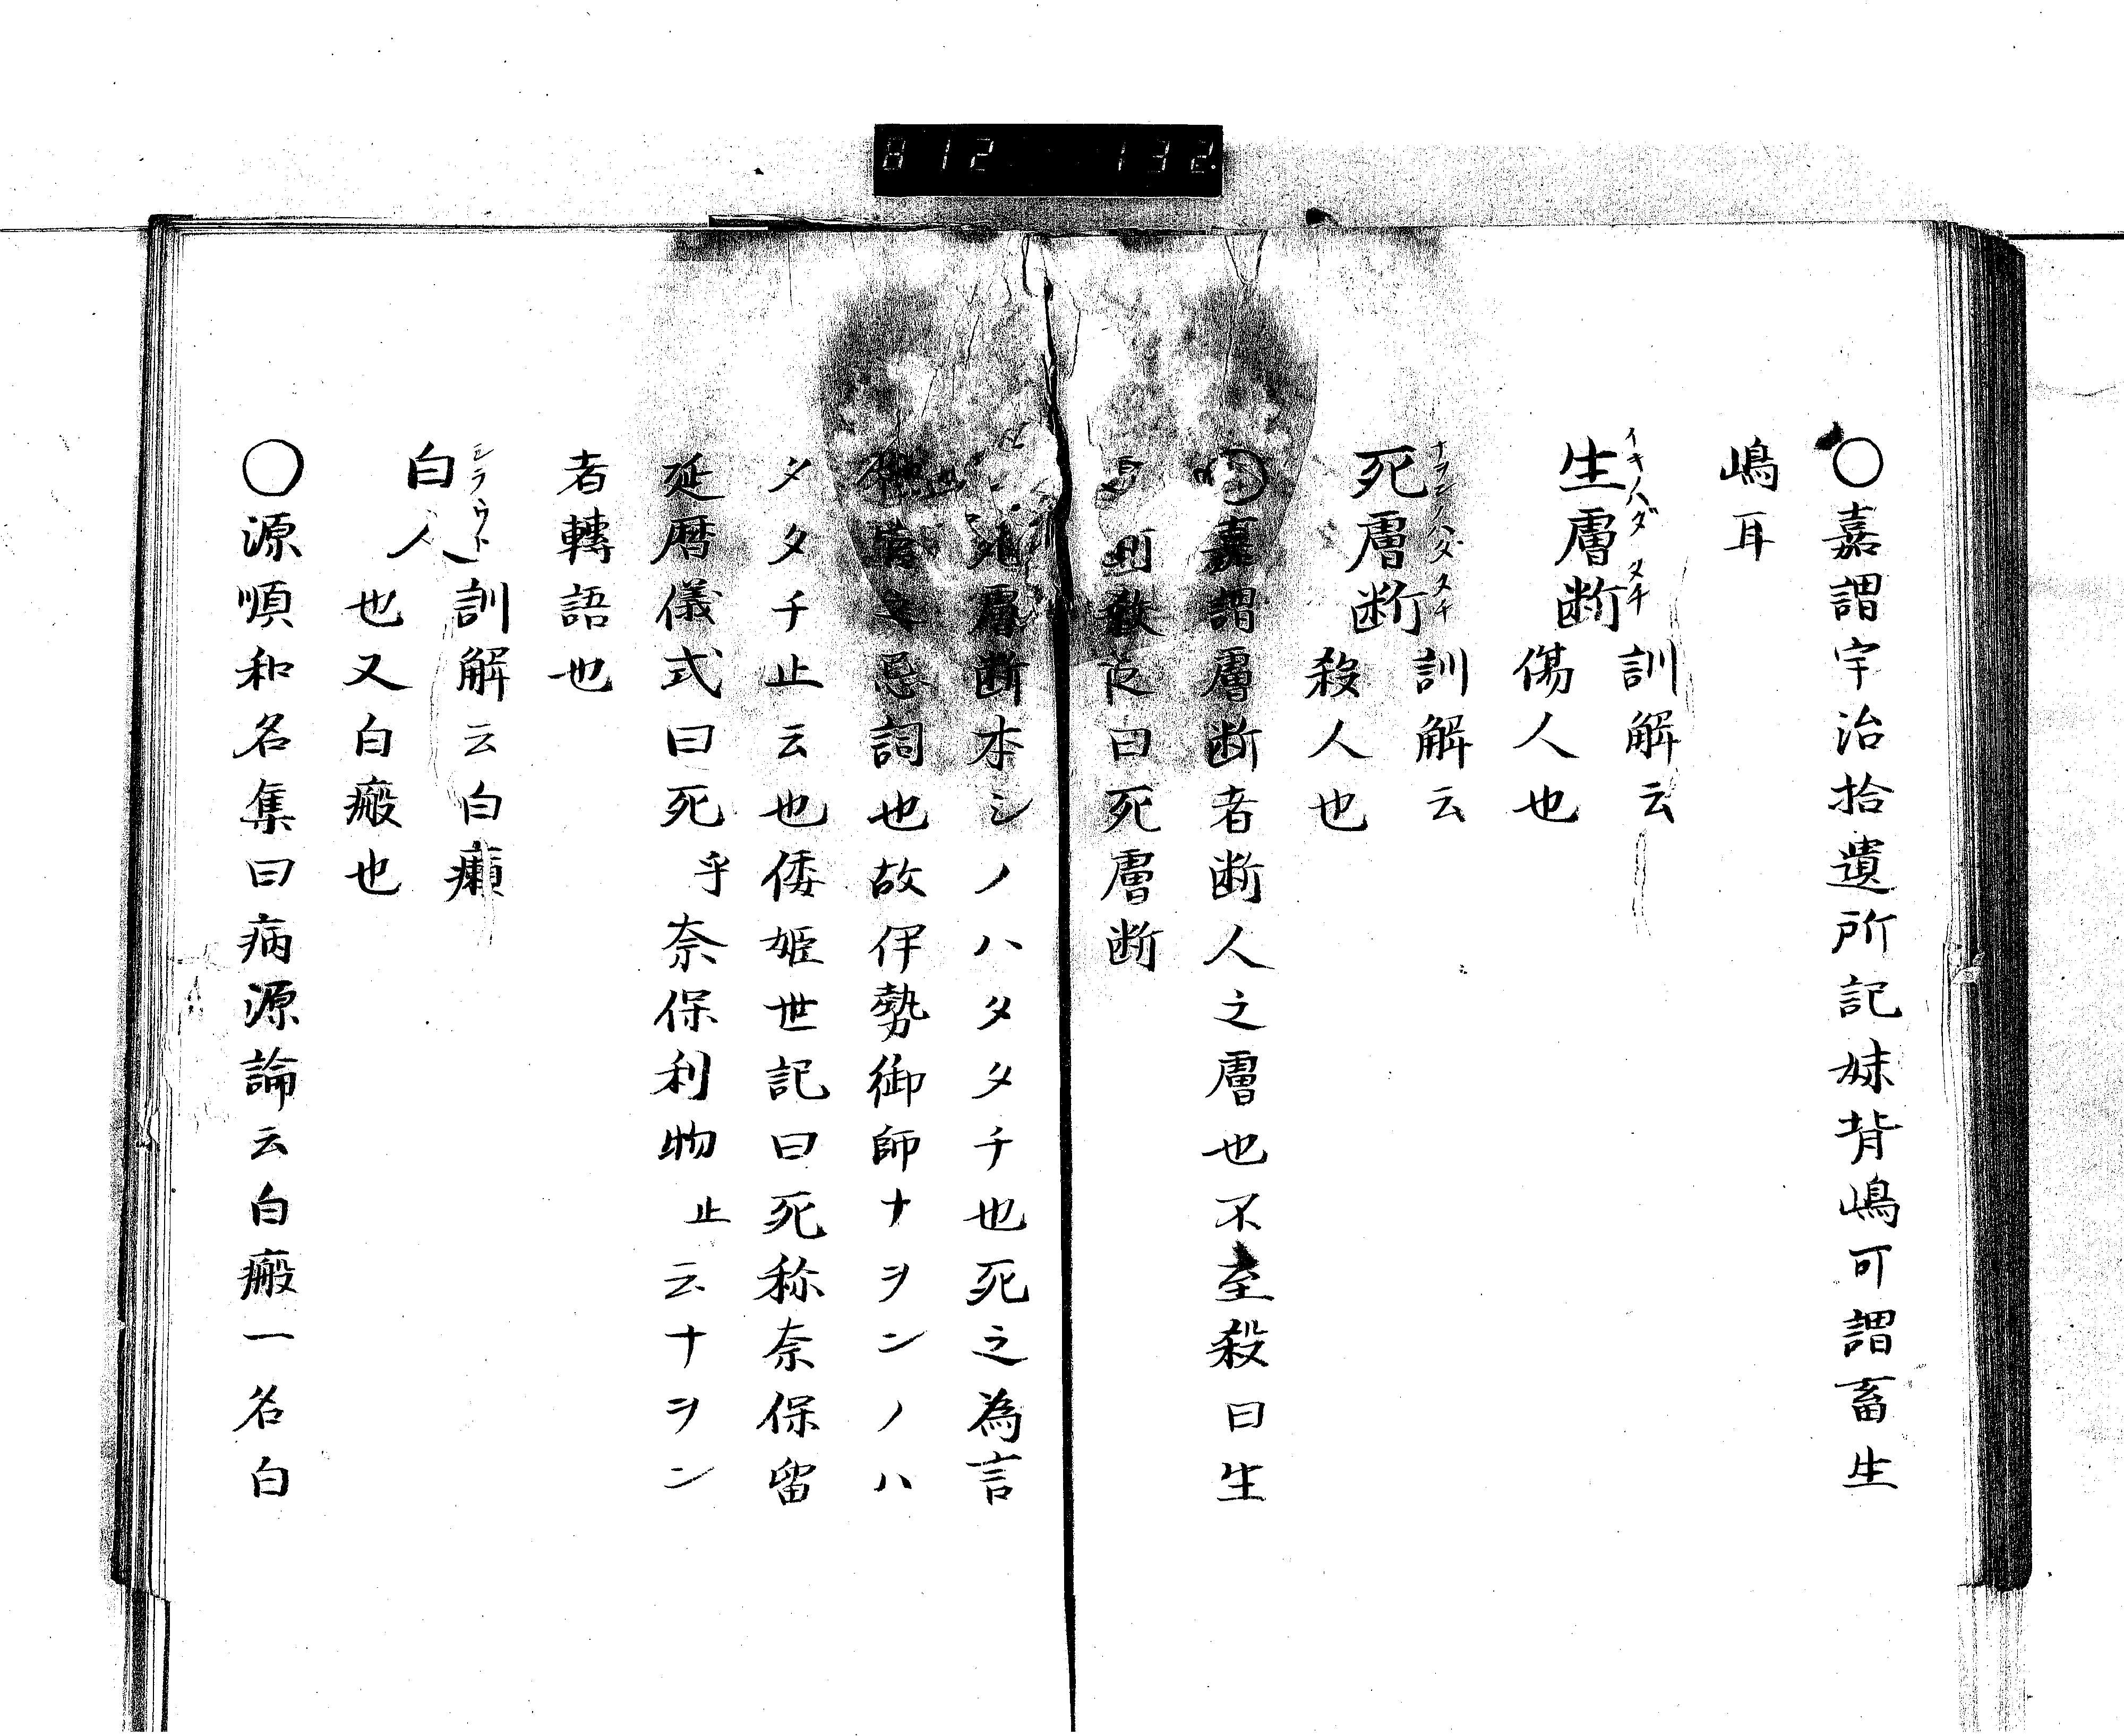 812 132
○嘉謂宇治拾遺所記妹背嶋可謂畜生
嶋耳
生膚断 訓解云
傷人也
イキハダタチ
死膚断 訓解云
殺人也
○嘉謂膚断者断人之膚也不至殺曰生
則殺
曰死膚断
死膚断本シノハタタチ也死之為言
忌詞也故伊勢御師ナヲンノハ
タタチ止云也倭姫世記曰死称奈保留
延暦儀式曰死乎奈保利物止云ナヲン
者轉語也
白人 訓解云白癩
也又白癜也
シラウト
○源順和名集曰病源論云白癜一名白